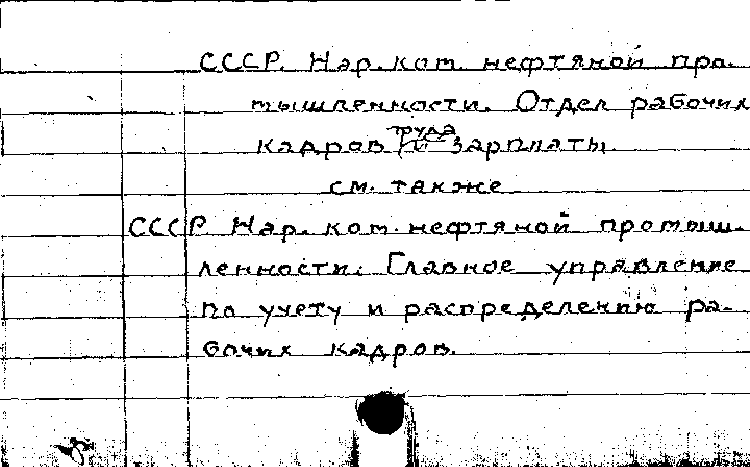 СССР. Нар. ком. нефтяной про-
мышленности. Отдел рабочих
кадров, труда и зарплаты
см. также
СССР Нар. ком. нефтяной промыш-
ленности. Главное управление
по учету и распределению ра-
бочих кадров.